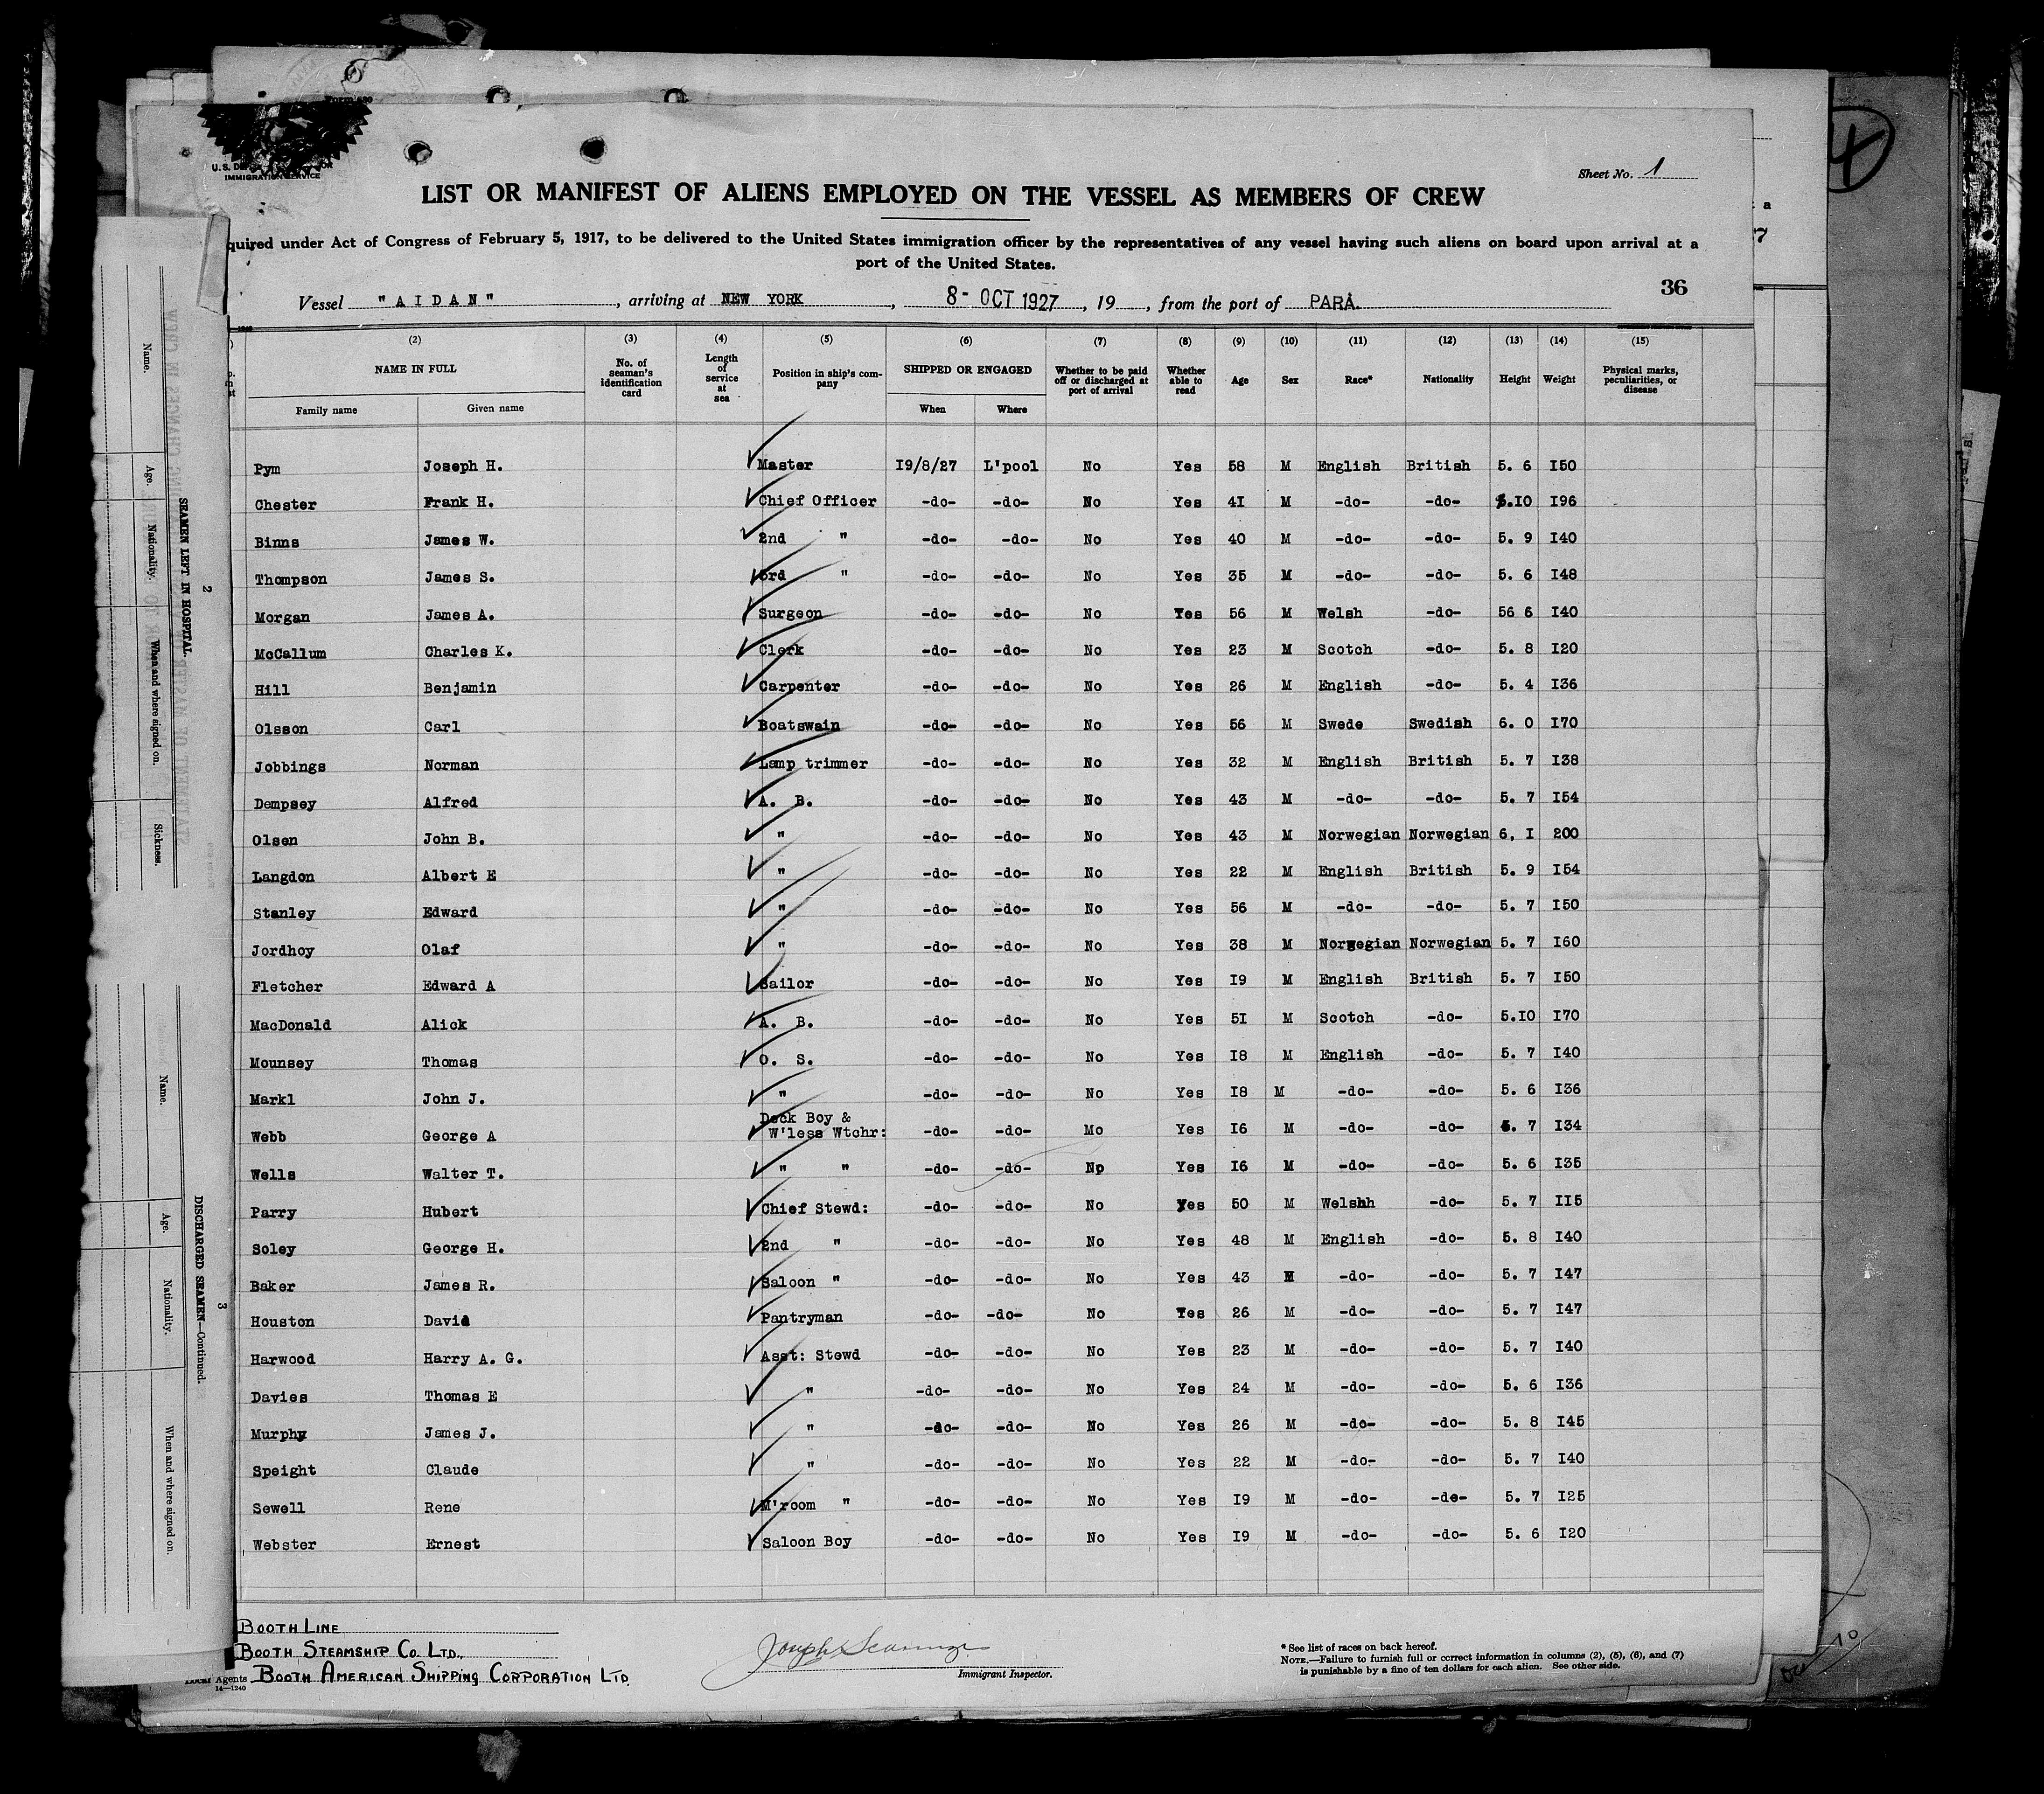 Sheet No. 1
U. S. D
IMMIGRATION SERVICE
LIST OR MANIFEST OF ALIENS EMPLOYED ON THE VESSEL AS MEMBERS OF CREW
quired under Act of Congress of February 5, 1917, to be delivered to the United States immigration officer by the representatives of any vessel having such aliens on board upon arrival at a
port of the United States.
36
Vessel "AIDAN", arriving at NEW YORK, 8- OCT 1927, 19, from the port of PARÁ.
(2) (3) (4) (5) (6) (7) (8) (9) (10) (11) (12) (13) (14) (15)
NAME IN FULL No. of seaman's identification card Length of service at sea Position in ship's company SHIPPED OR ENGAGED Whether to be paid off or discharged at port of arrival Whether able to read Age Sex Race* Nationality Height Weight Physical marks, peculiarities, or disease
Family name Given name When Where
Pym Joseph H. Master 19/8/27 L'pool No Yes 58 M English British 5. 6 150
Chester Frank H. Chief Officer -do- -do- No Yes 41 M -do- -do- 5.10 196
Binns James W. 2nd " -do- -do- No Yes 40 M -do- -do- 5. 9 140
Thompson James S. 3rd " -do- -do- No Yes 35 M -do- -do- 5. 6 148
Morgan James A. Surgeon -do- -do- No Yes 56 M Welsh -do- 56 6 140
McCallum Charles K. Clerk -do- -do- No Yes 23 M Scotch -do- 5. 8 120
Hill Benjamin Carpenter -do- -do- No Yes 26 M English -do- 5. 4 136
Olsson Carl Boatswain -do- -do- No Yes 56 M Swede Swedish 6. 0 170
Jobbings Norman Lamp trimmer -do- -do- No Yes 32 M English British 5. 7 138
Dempsey Alfred A. B. -do- -do- No Yes 43 M -do- -do- 5. 7 154
Olsen John B. " -do- -do- No Yes 43 M Norwegian Norwegian 6. 1 200
Langdon Albert E " -do- -do- No Yes 22 M English British 5. 9 154
Stanley Edward " -do- -do- No Yes 56 M -do- -do- 5. 7 150
Jordhoy Olaf " -do- -do- No Yes 38 M Norwegian Norwegian 5. 7 160
Fletcher Edward A Sailor -do- -do- No Yes 19 M English British 5. 7 150
MacDonald Alick A. B. -do- -do- No Yes 51 M Scotch -do- 5.10 170
Mounsey Thomas O. S. -do- -do- No Yes 18 M English -do- 5. 7 140
Markl John J. " -do- -do- No Yes 18 M -do- -do- 5. 6 136
Webb George A Deck Boy & W'less Wtchr: -do- -do- Mo Yes 16 M -do- -do- 5. 7 134
Wells Walter T. " " -do- -do- Np Yes 16 M -do- -do- 5. 6 135
Parry Hubert Chief Stewd: -do- -do- No Yes 50 M Welshh -do- 5. 7 115
Soley George H. 2nd " -do- -do- No Yes 48 M English -do- 5. 8 140
Baker James R. Saloon " -do- -do- No Yes 43 M -do- -do- 5. 7 147
Houston David Pantryman -do- -do- No Yes 26 M -do- -do- 5. 7 147
Harwood Harry A. G. Asst: Stewd -do- -do- No Yes 23 M -do- -do- 5. 7 140
Davies Thomas E " -do- -do- No Yes 24 M -do- -do- 5. 6 136
Murphy James J. " -do- -do- No Yes 26 M -do- -do- 5. 8 145
Speight Claude " -do- -do- No Yes 22 M -do- -do- 5. 7 140
Sewell Rene M'room " -do- -do- No Yes 19 M -do- -de- 5. 7 125
Webster Ernest Saloon Boy -do- -do- No Yes 19 M -do- -do- 5. 6 120
BOOTH LINE
BOOTH STEAMSHIP CO. LTD.,
Agents BOOTH AMERICAN SHIPPING CORPORATION LTD.
14—1240
Immigrant Inspector.
* See list of races on back hereof.
NOTE.—Failure to furnish full or correct information in columns (2), (5), (6), and (7)
is punishable by a fine of ten dollars for each alien. See other side.
2
SEAMEN LEFT IN HOSPITAL.
Name. Age. Nationality. When and where signed on. Sickness.
3
DISCHARGED SEAMEN—Continued.
Name. Age. Nationality. When and where signed on.
4
10